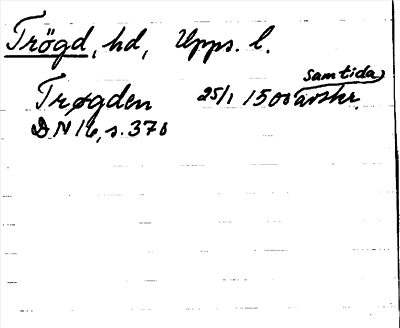 Trögd, hd, Upps. l.
Trøgden 25/1 1500 samtida avskr.
DN 16, s. 378